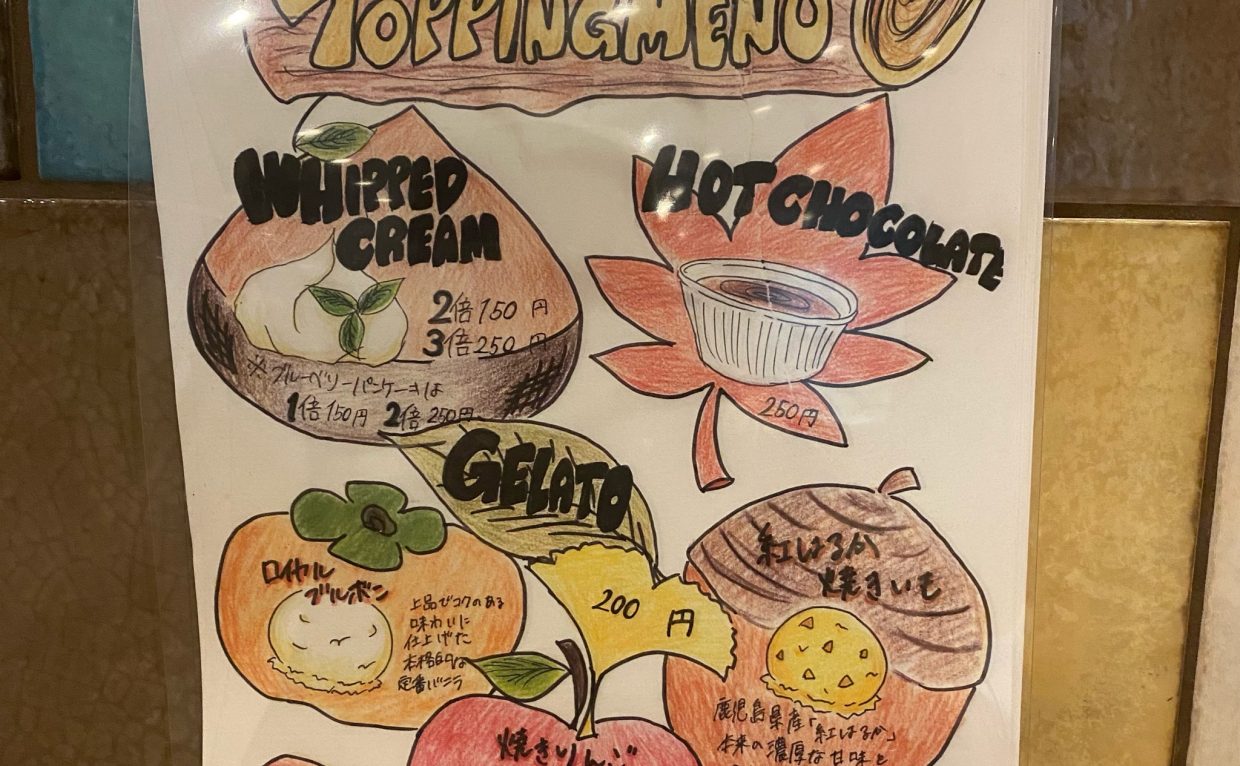 TOPPINGMENU
WHIPPED
CREAM
2倍150円
3倍250円
※ブルーベリーパンケーキは
1倍150円 2倍250円
HOT CHOCOLATE
250円
GELATO
200円
ロイヤル
ブルボン
上品でコクのある
味わいに
仕上げた
本格的な
定番バニラ
紅はるか
焼きいも
鹿児島県産「紅はるか」
本来の濃厚な甘味と
焼きりんご